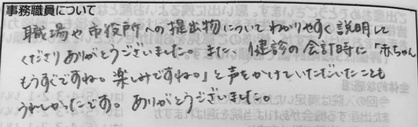 事務職員について
職場や市役所への提出物についてわかりやすく説明して
くださりありがとうございました。また、健診の会計時に「赤ちゃん
もうすぐですね。楽しみですね。」と声をかけていただいたことも
うれしかったです。ありがとうございました。